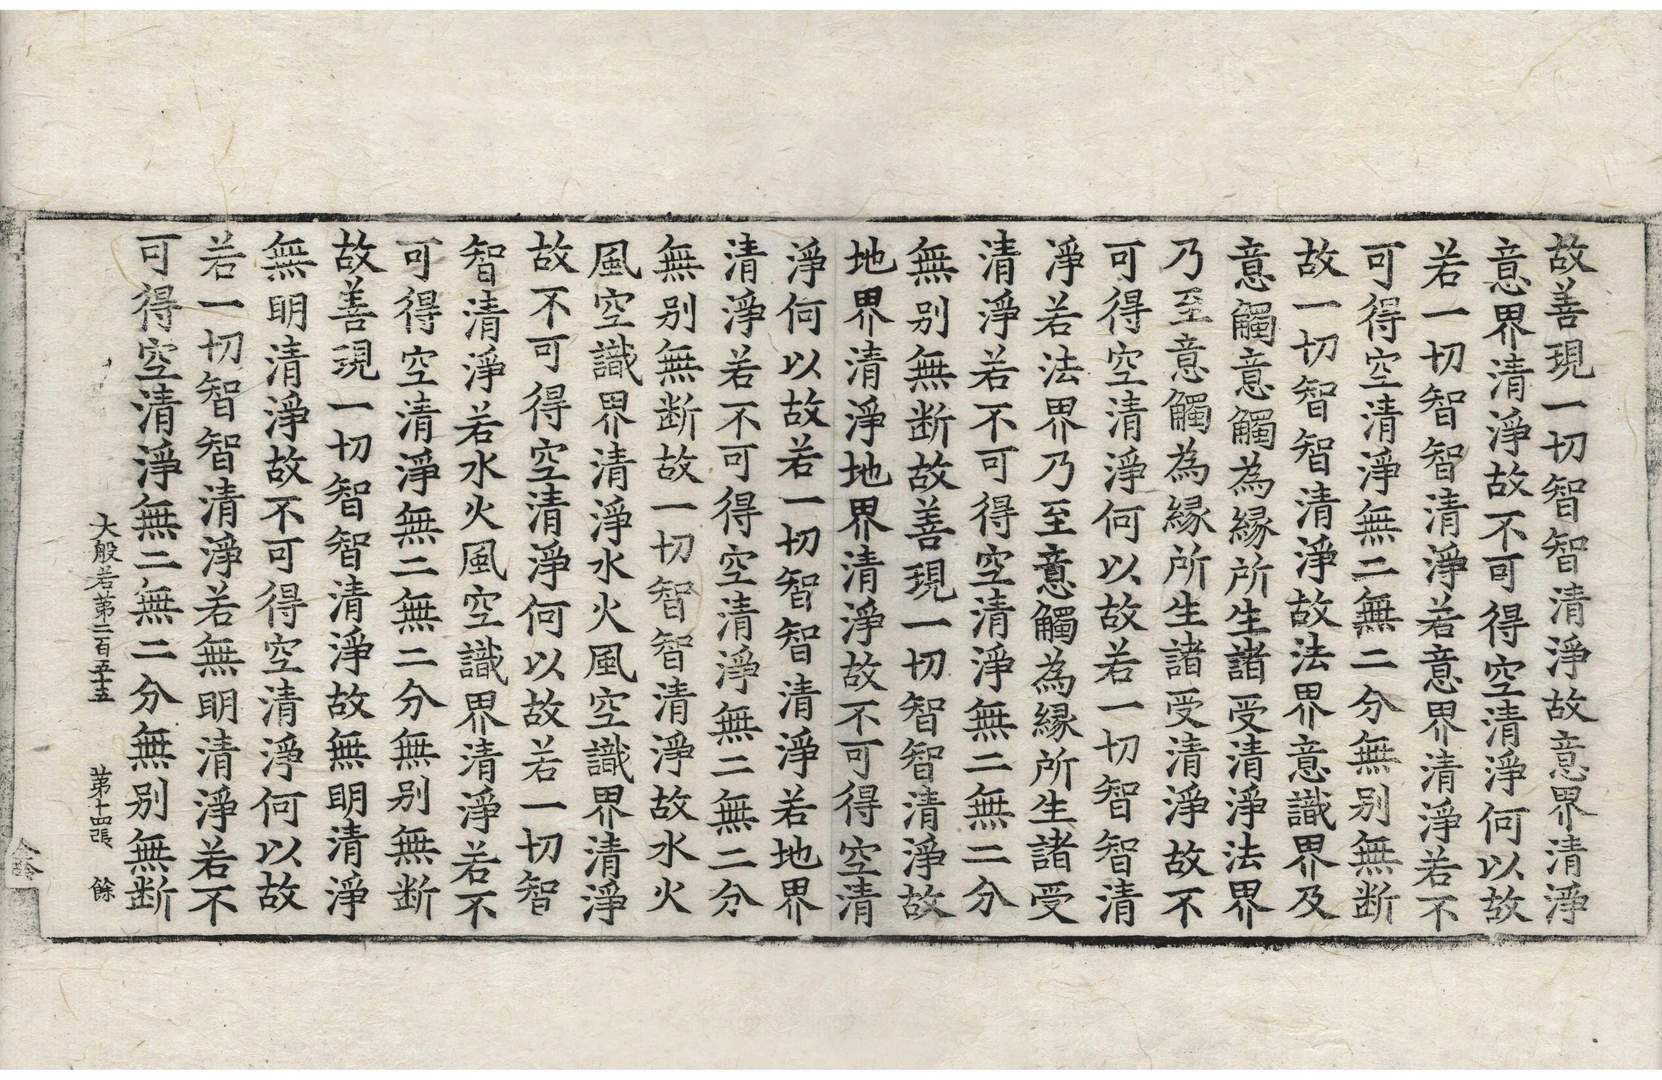 故善現一切智智清淨故意界清淨
意界清淨故不可得空清淨何以故
若一切智智清淨若意界清淨若不
可得空清淨無二無二分無别無断
故一切智智清淨故法界意識界及
意觸意觸為縁所生諸受清淨法界
乃至意觸為縁所生諸受清淨故不
可得空清淨何以故若一切智智清
淨若法界乃至意觸為縁所生諸受
清淨若不可得空清淨無二無二分
無别無断故善現一切智智清淨故
地界清淨地界清淨故不可得空清
淨何以故若一切智智清淨若地界
清淨若不可得空清淨無二無二分
無别無断故一切智智清淨故水火
風空識界清淨水火風空識界清淨
故不可得空清淨何以故若一切智
智清淨若水火風空識界清淨若不
可得空清淨無二無二分無别無断
故善現一切智智清淨故無明清淨
無明清淨故不可得空清淨何以故
若一切智智清淨若無明清淨若不
可得空清淨無二無二分無别無断
大般若第二百五十五 第十四張 餘